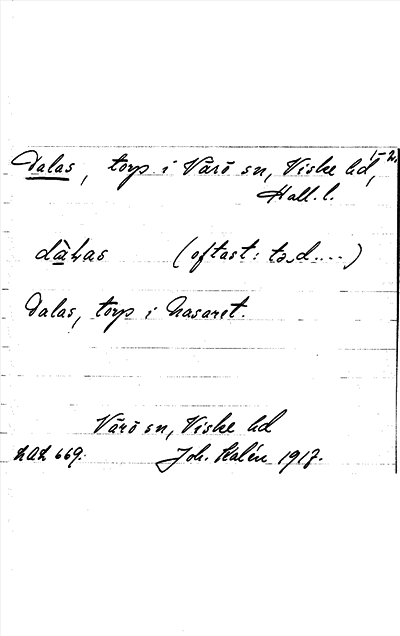 Dalas, torp i Värö sn, Viske hd, 1-2.
Hall. l.
dàɫas (oftast: tə d....)
Dalas, torp i Nasaret.
Värö sn, Viske hd
LAL 669. Joh. Kalén 1917.